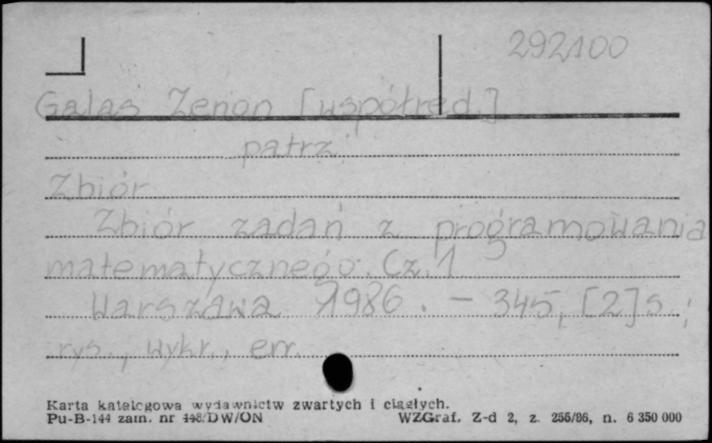 292100
Galas Zenon [współred.]
patrz
Zbiór
Zbiór zadań z programowania
matematycznego. Cz. 1
Warszawa 1986. - 345, [2] s. ;
rys., wykr., err.
Karta katalogowa wydawnictw zwartych i ciągłych.
Pu-B-144 zam. nr 448/DW/ON WZGraf. Z-d 2, z. 255/86, n. 6 350 000